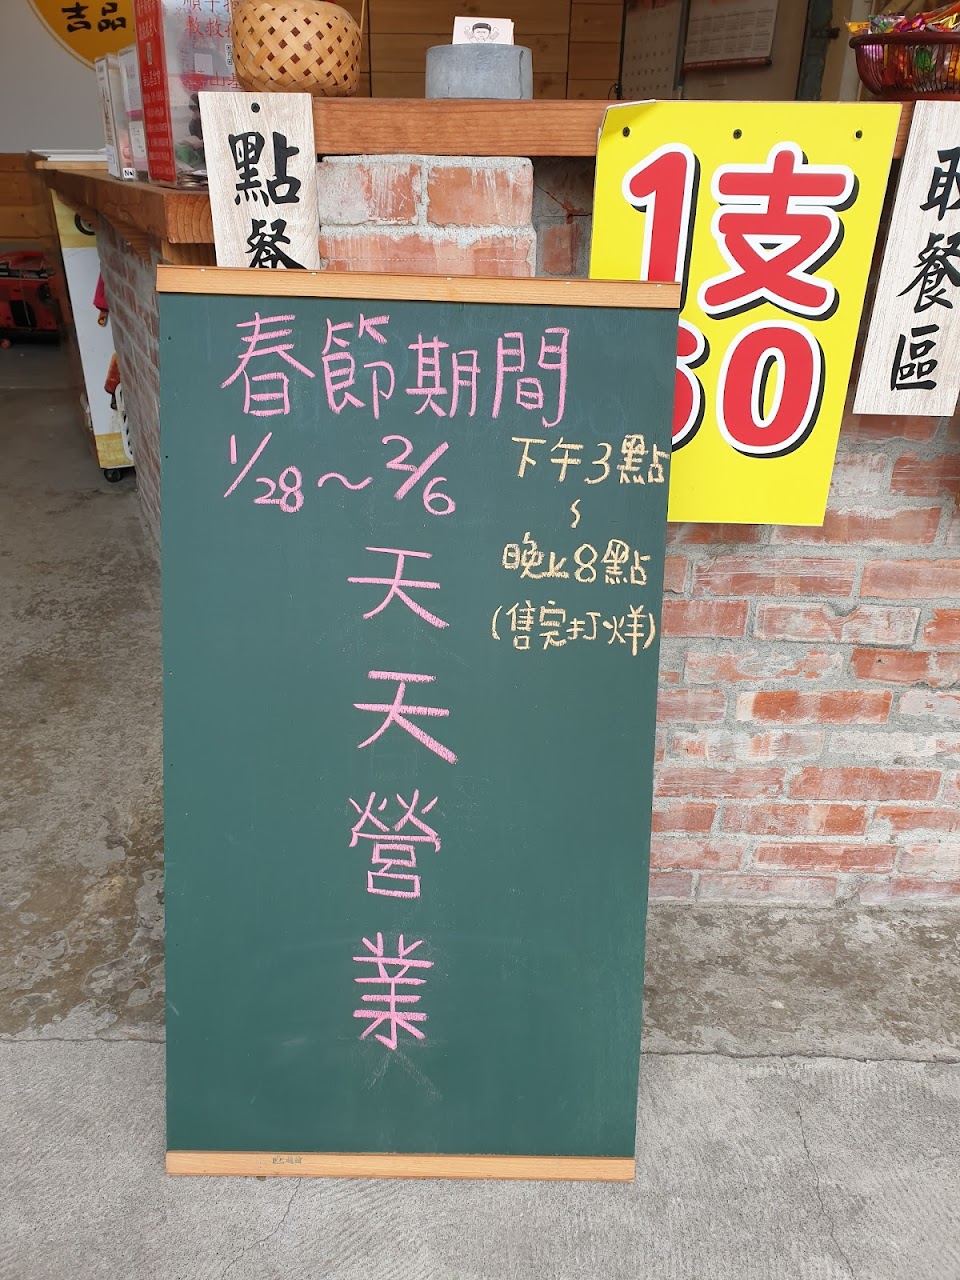 吉品
點餐
1支
60
取餐區
春節期間
1/28～2/6
天天營業
下午3點
～
晚上8點
(售完打烊)